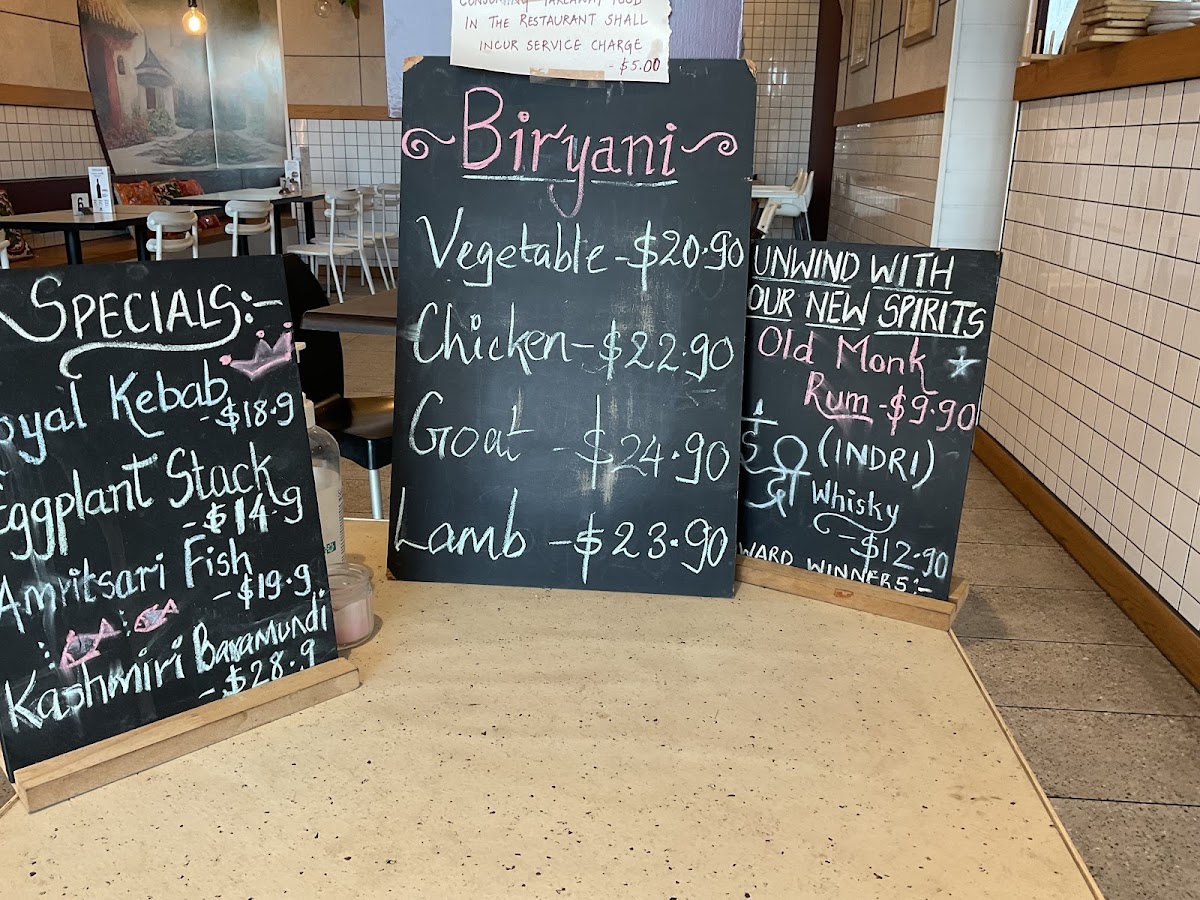 CONSUMING TAKEAWAY FOOD
IN THE RESTAURANT SHALL
INCUR SERVICE CHARGE
- $5.00
Biryani
Vegetable - $20.90
Chicken - $22.90
Goat - $24.90
Lamb - $23.90
SPECIALS:-
oyal Kebab
- $18.9
Eggplant Stack
- $14.9
Amritsari Fish
- $19.9
Kashmiri Baramundi
- $28.9
UNWIND WITH
OUR NEW SPIRITS
Old Monk
Rum - $9.90
इंद्री (INDRI)
Whisky
- $12.90
WARD WINNERS:-
6